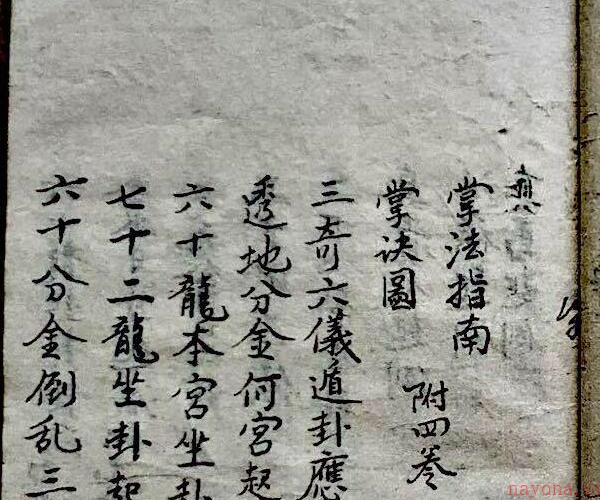 掌法指南 附四卷
掌訣圖
三奇六儀遁卦應
透地分金何宮起
六十龍本宮坐卦
七十二龍坐卦起
六十分金倒亂三